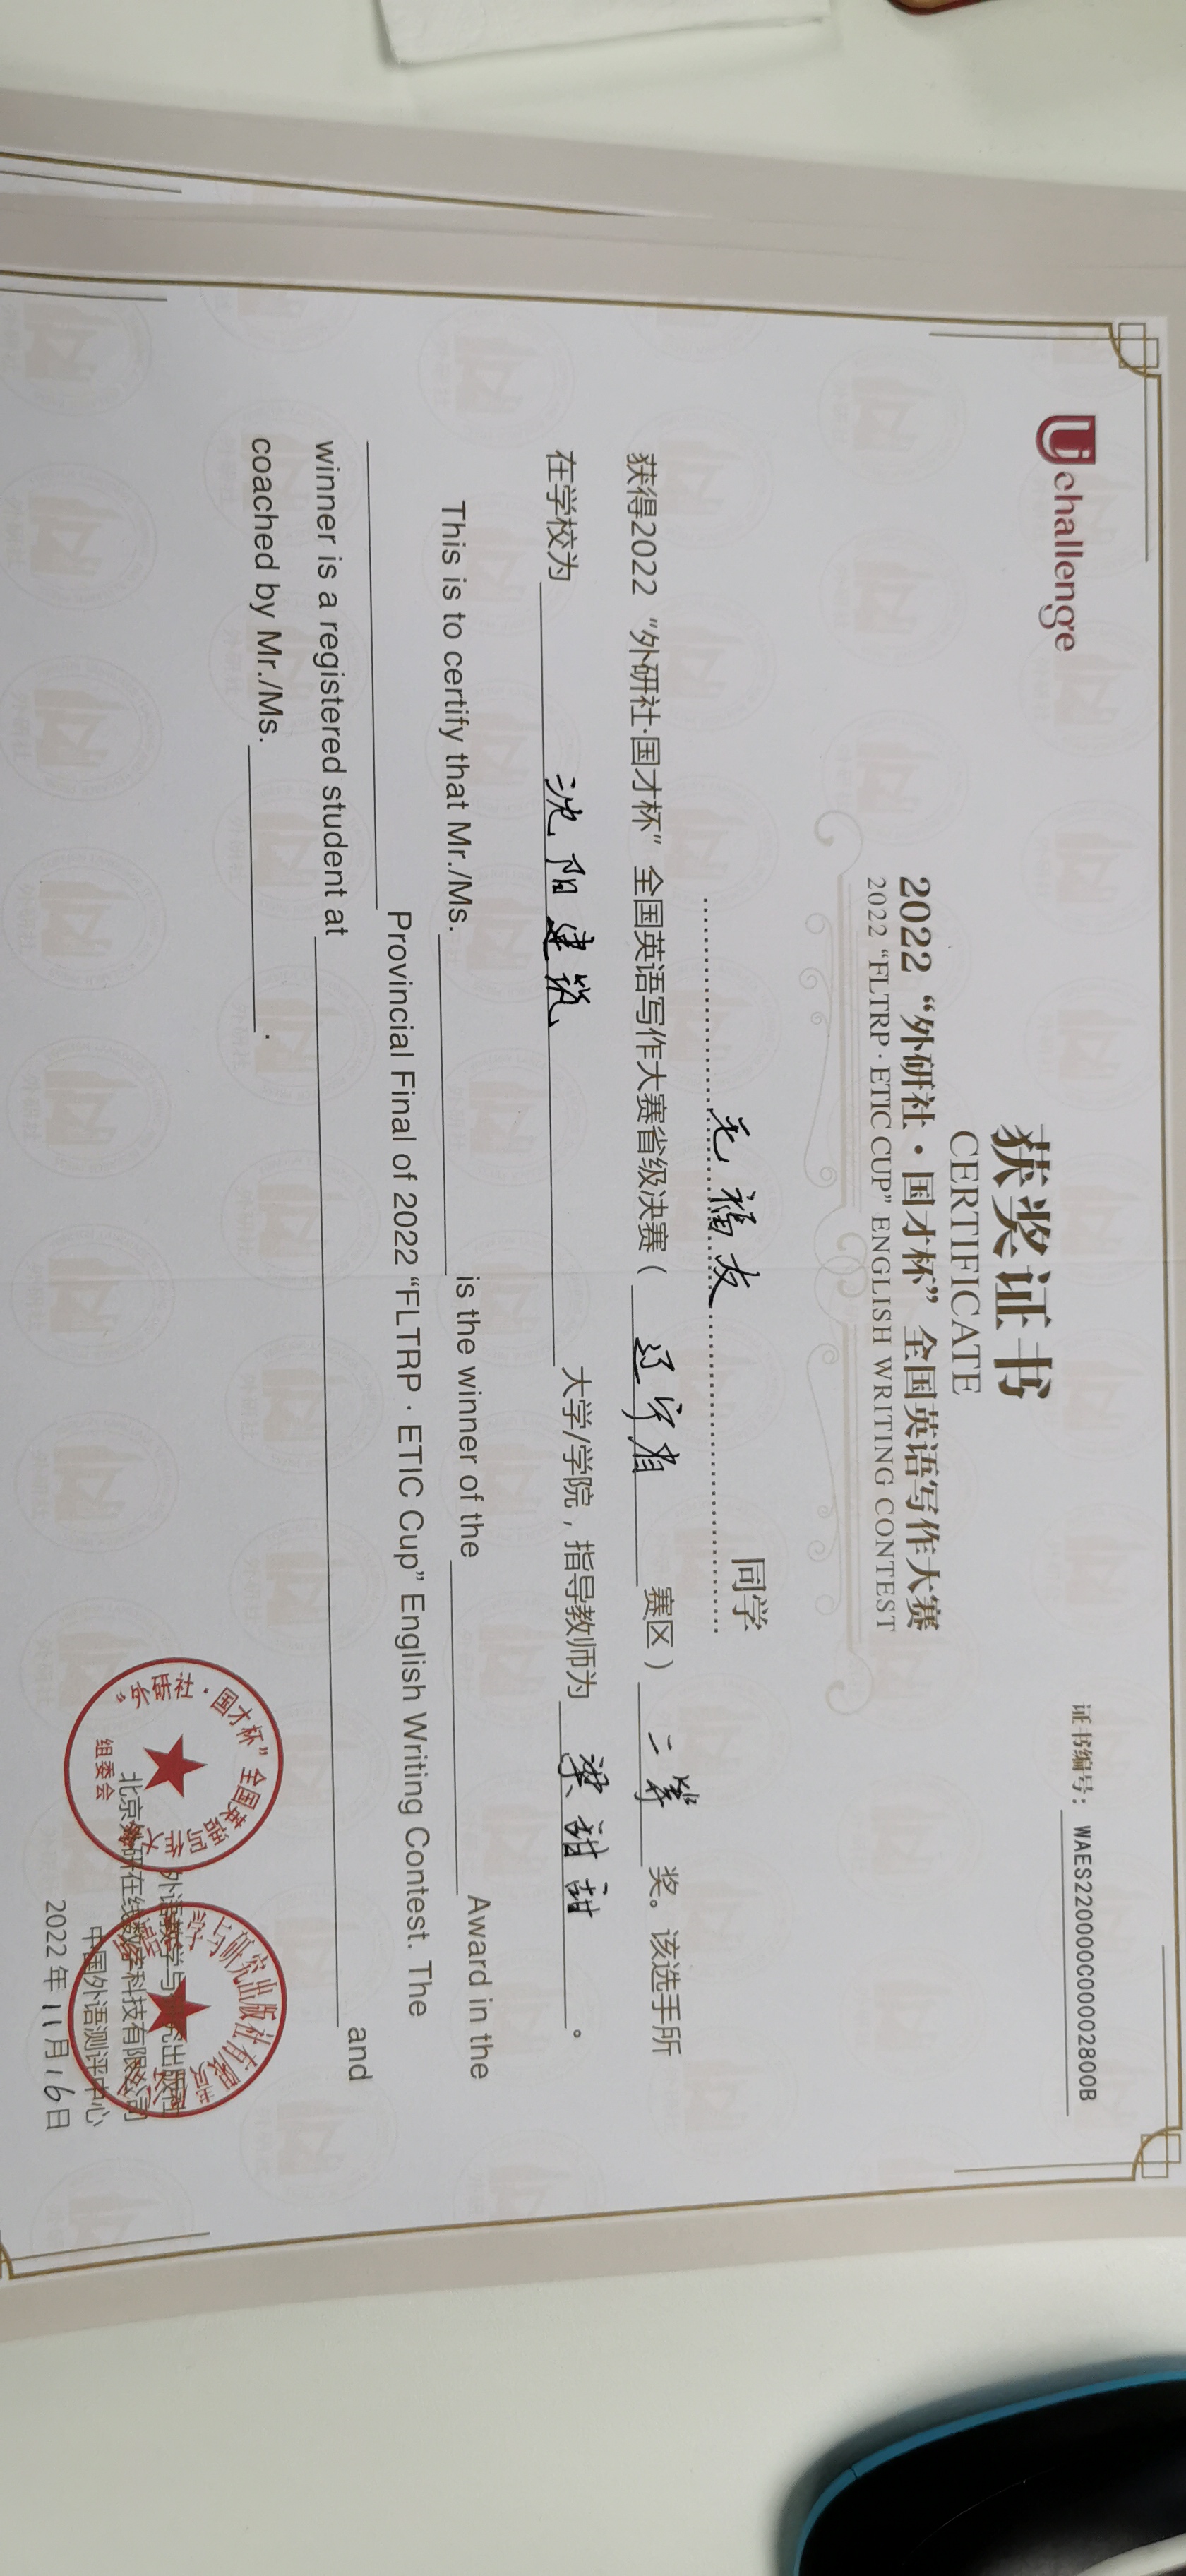 Uchallenge
证书编号：WAES220000C000002800B
获奖证书
CERTIFICATE
2022 “外研社·国才杯” 全国英语写作大赛
2022 “FLTRP·ETIC CUP” ENGLISH WRITING CONTEST
福友 同学
获得2022 “外研社·国才杯” 全国英语写作大赛省级决赛（辽宁省 赛区）二等 奖。该选手所
在学校为 沈阳建筑 大学/学院，指导教师为 梁甜甜。
This is to certify that Mr./Ms. is the winner of the Award in the
Provincial Final of 2022 “FLTRP · ETIC Cup” English Writing Contest. The
winner is a registered student at and
coached by Mr./Ms. .
“外研社·国才杯” 全国英语写作大
组委会
外语教学与研究出版社
北京外研在线数字科技有限公司
中国外语测评中心
2022 年 11 月 16 日